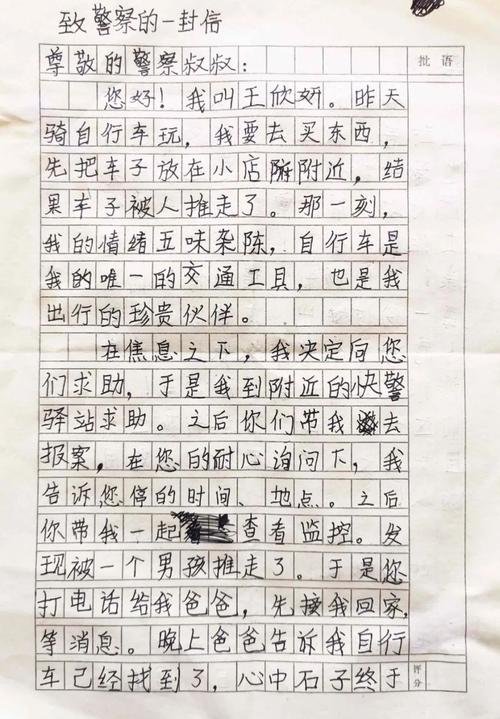 致警察的一封信
批语
尊敬的警察叔叔：
您好！我叫王欣妍。昨天
骑自行车玩，我要去买东西，
先把车子放在小店附近，结
果车子被人推走了。那一刻，
我的情绪五味杂陈，自行车是
我的唯一的交通工具，也是我
出行的珍贵伙伴。
在焦急之下，我决定向您
们求助，于是我到附近的快警
驿站求助。之后你们带我去
报案，在您的耐心询问下，我
告诉您停的时间、地点。之后
你带我一起查看监控。发
现被一个男孩推走了。于是您
打电话给我爸爸，先接我回家，
等消息。晚上爸爸告诉我自行
车已经找到了，心中石子终于
评分